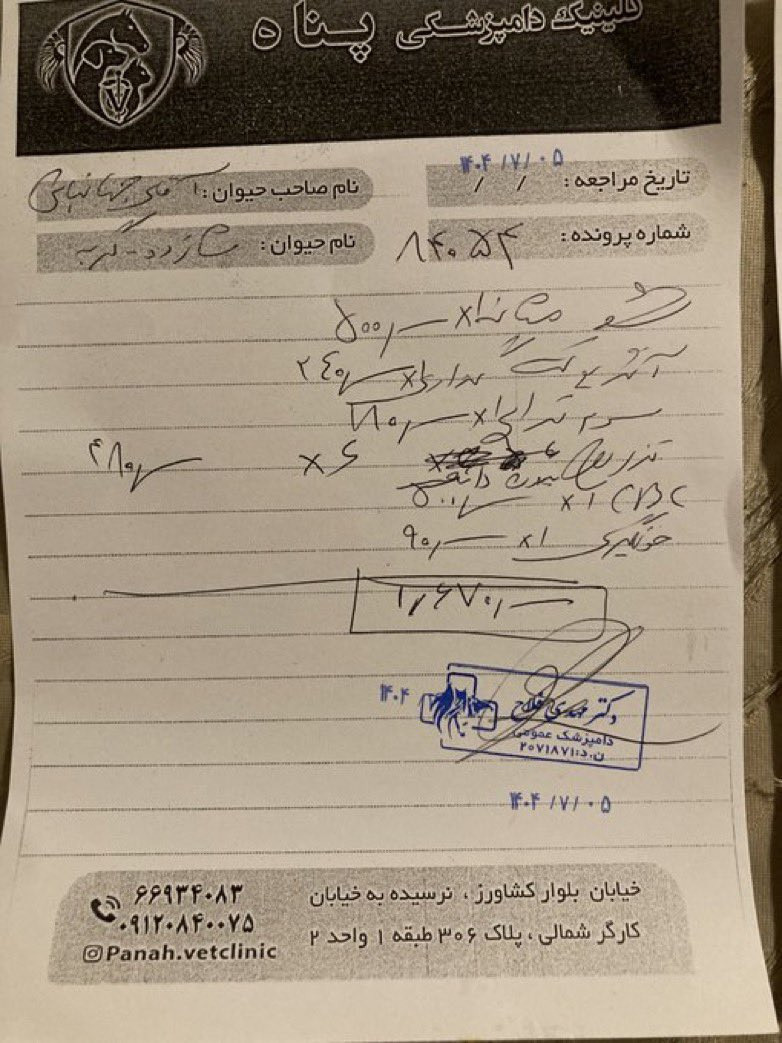 کلینیک دامپزشکی پناه
تاریخ مراجعه: ۱۴۰۴/۷/۰۵
نام صاحب حیوان: آقای جهانبانی
شماره پرونده: ۸۴۰۵۴
نام حیوان: شازده - گربه
شستشو مثانه ۱× ۵۰۰
۱× ۲۴۰
سرم تراپی ۱× ۱۸۰
تزریق ۶ × ۴۸۰
CBC ۱×
خونگیری ۱× ۹۰
۱,۶۷۰
دکتر مهدی فلاح
دامپزشک عمومی
ن.د: ۲۰۷۱۸۷۱
۱۴۰۴
۱۴۰۴/۷/۰۵
خیابان بلوار کشاورز ، نرسیده به خیابان
کارگر شمالی ، پلاک ۳۰۶ طبقه ۱ واحد ۲
۶۶۹۳۴۰۸۳
۰۹۱۲۰۸۴۰۰۷۵
Panah.vetclinic